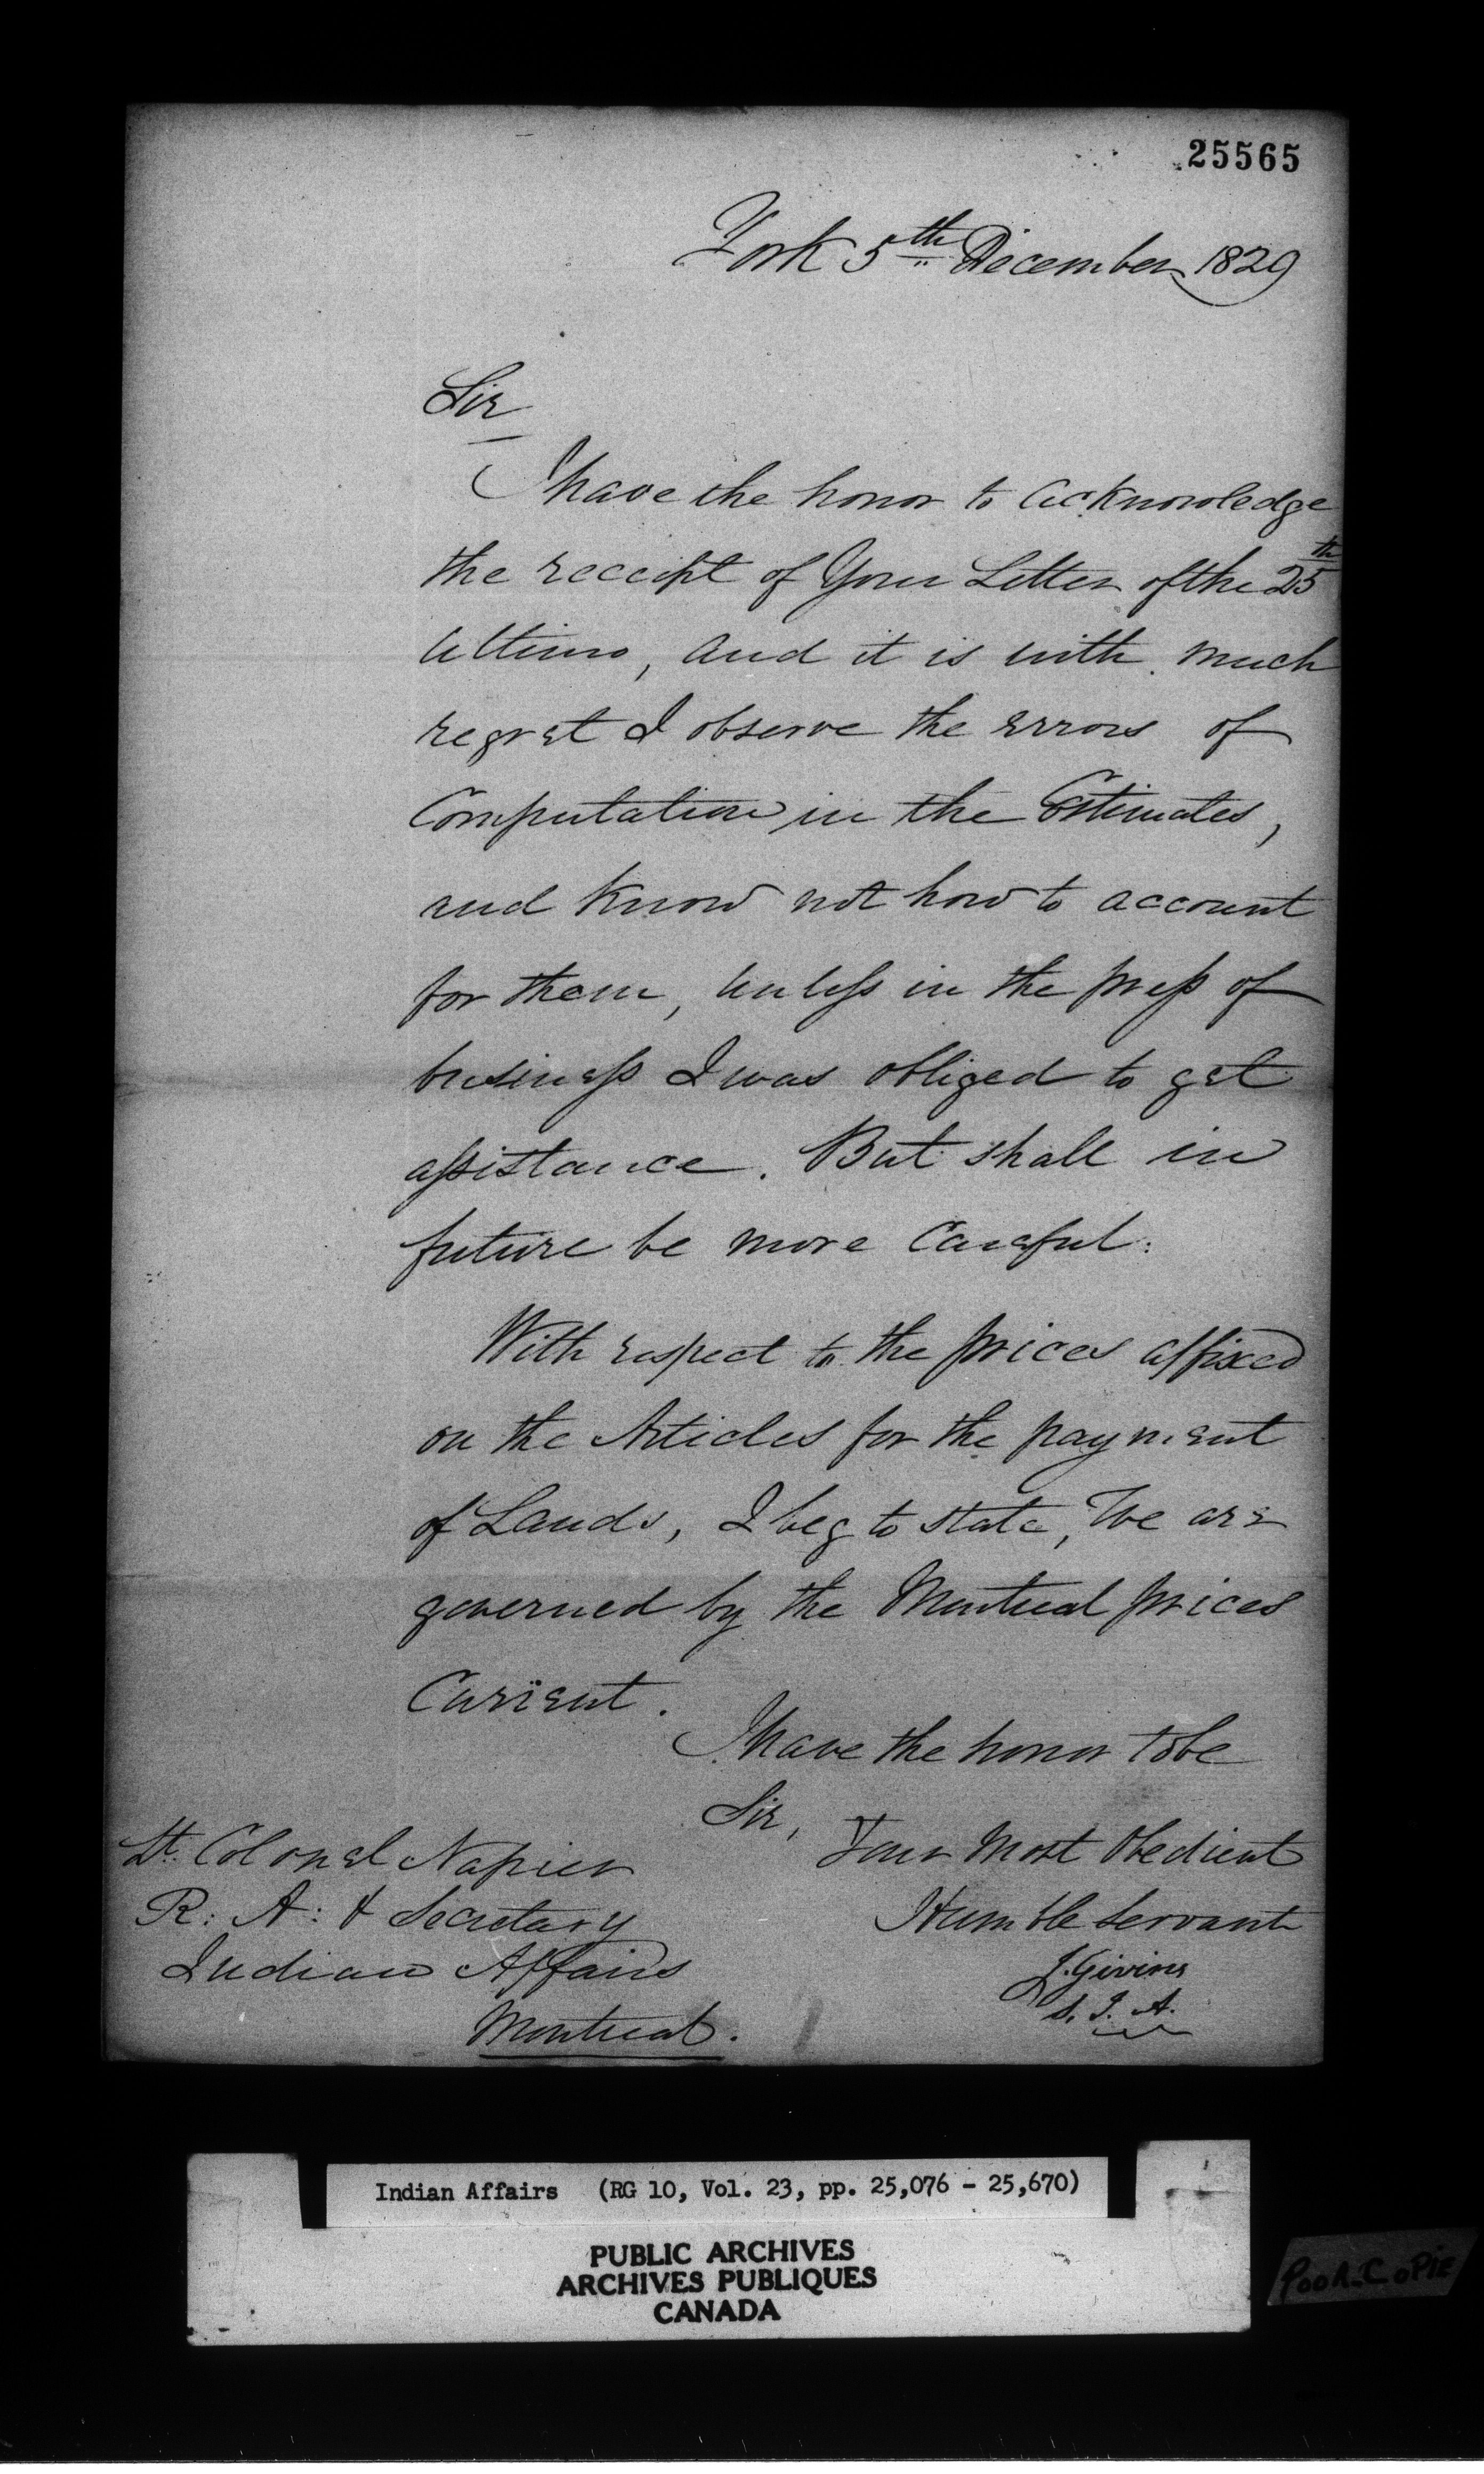 25565
York 5th December 1829
Sir
I have the honor to acknowledge
the receipt of Your Letter of the 25th
Ultimo, and it is with much
regret I observe the errors of
Computation in the Estimates,
and know not how to account
for them, unless in the press of
business I was obliged to get
assistance. But shall in
future be more Careful.
With respect to the prices affixed
on the Articles for the payment
of Lands, I beg to state, We are
governed by the Montreal prices
Current.
I have the honor to be
Sir,
Your Most Obedient
Humble Servant
J. Givins
S. I. A.
Lt. Colonel Napier
R: A: & Secretary
Indian Affairs
Montreal.
Indian Affairs (RG 10, Vol. 23, pp. 25,076 - 25,670)
PUBLIC ARCHIVES
ARCHIVES PUBLIQUES
CANADA
POOR COPIE